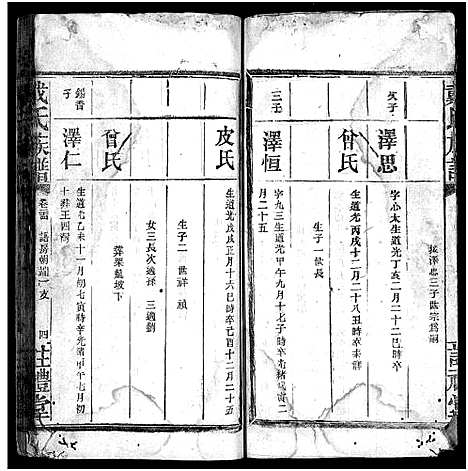 戴氏族譜
次子
澤思
字心太生道光丁亥二月二十二巳時卒
抚澤忠三子世宗爲嗣
曾氏
生道光丙戌十二月二十八丑時卒未詳
生子一 世長
三子
澤恒
字九三生道光甲午九月十七子時卒光緒
月二十五
皮氏
生道光戊戌正月十六巳時卒己酉十二月二十五
生子二 世祥 禎
女三長次適孫 三適劉
錫香
子
澤仁
生道光乙未十一月初七寅時卒光緒甲午七月初
十葬王四灣
曾氏
葬栗樹坡下
戴氏族譜
卷之四
語房朝一支
四
註禮堂